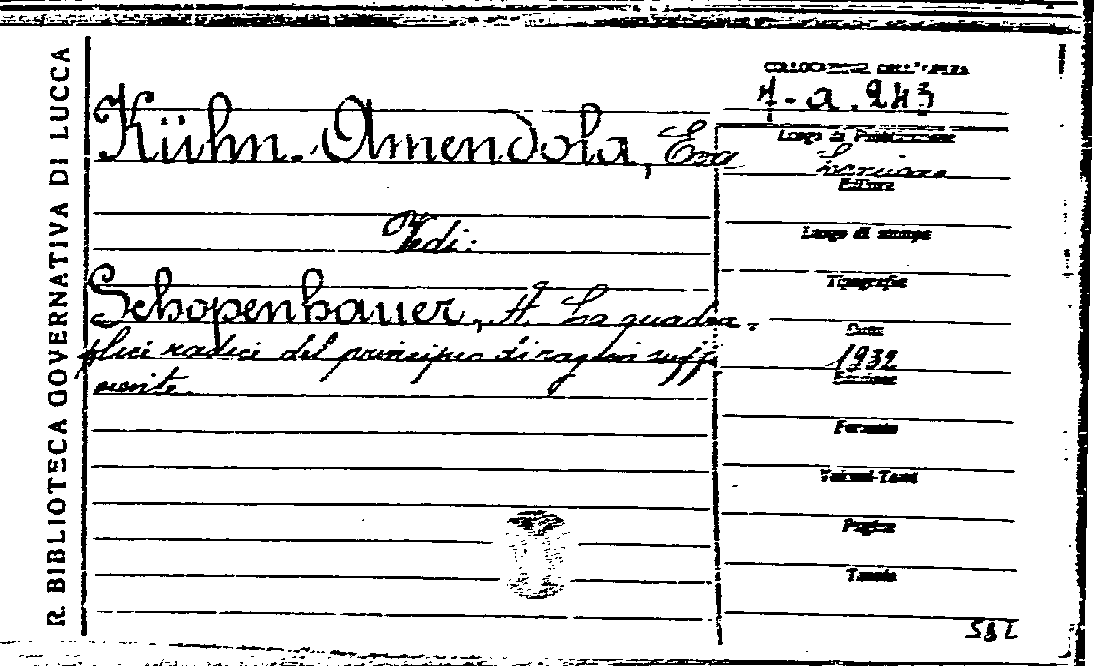 R. BIBLIOTECA GOVERNATIVA DI LUCCA
Kühn-Amendola, Eva
Vedi:
Schopenhauer, A. La quadru-
plici radici del principio di ragion suffi
ciente
COLLOCAZIONE DELL'OPERA
4. a. 243
Luogo di Pubblicazione
Lanciano
Editore
Luogo di stampa
Tipografia
Data
1932
Edizione
Formato
Volumi-Tomi
Pagine
Tavole